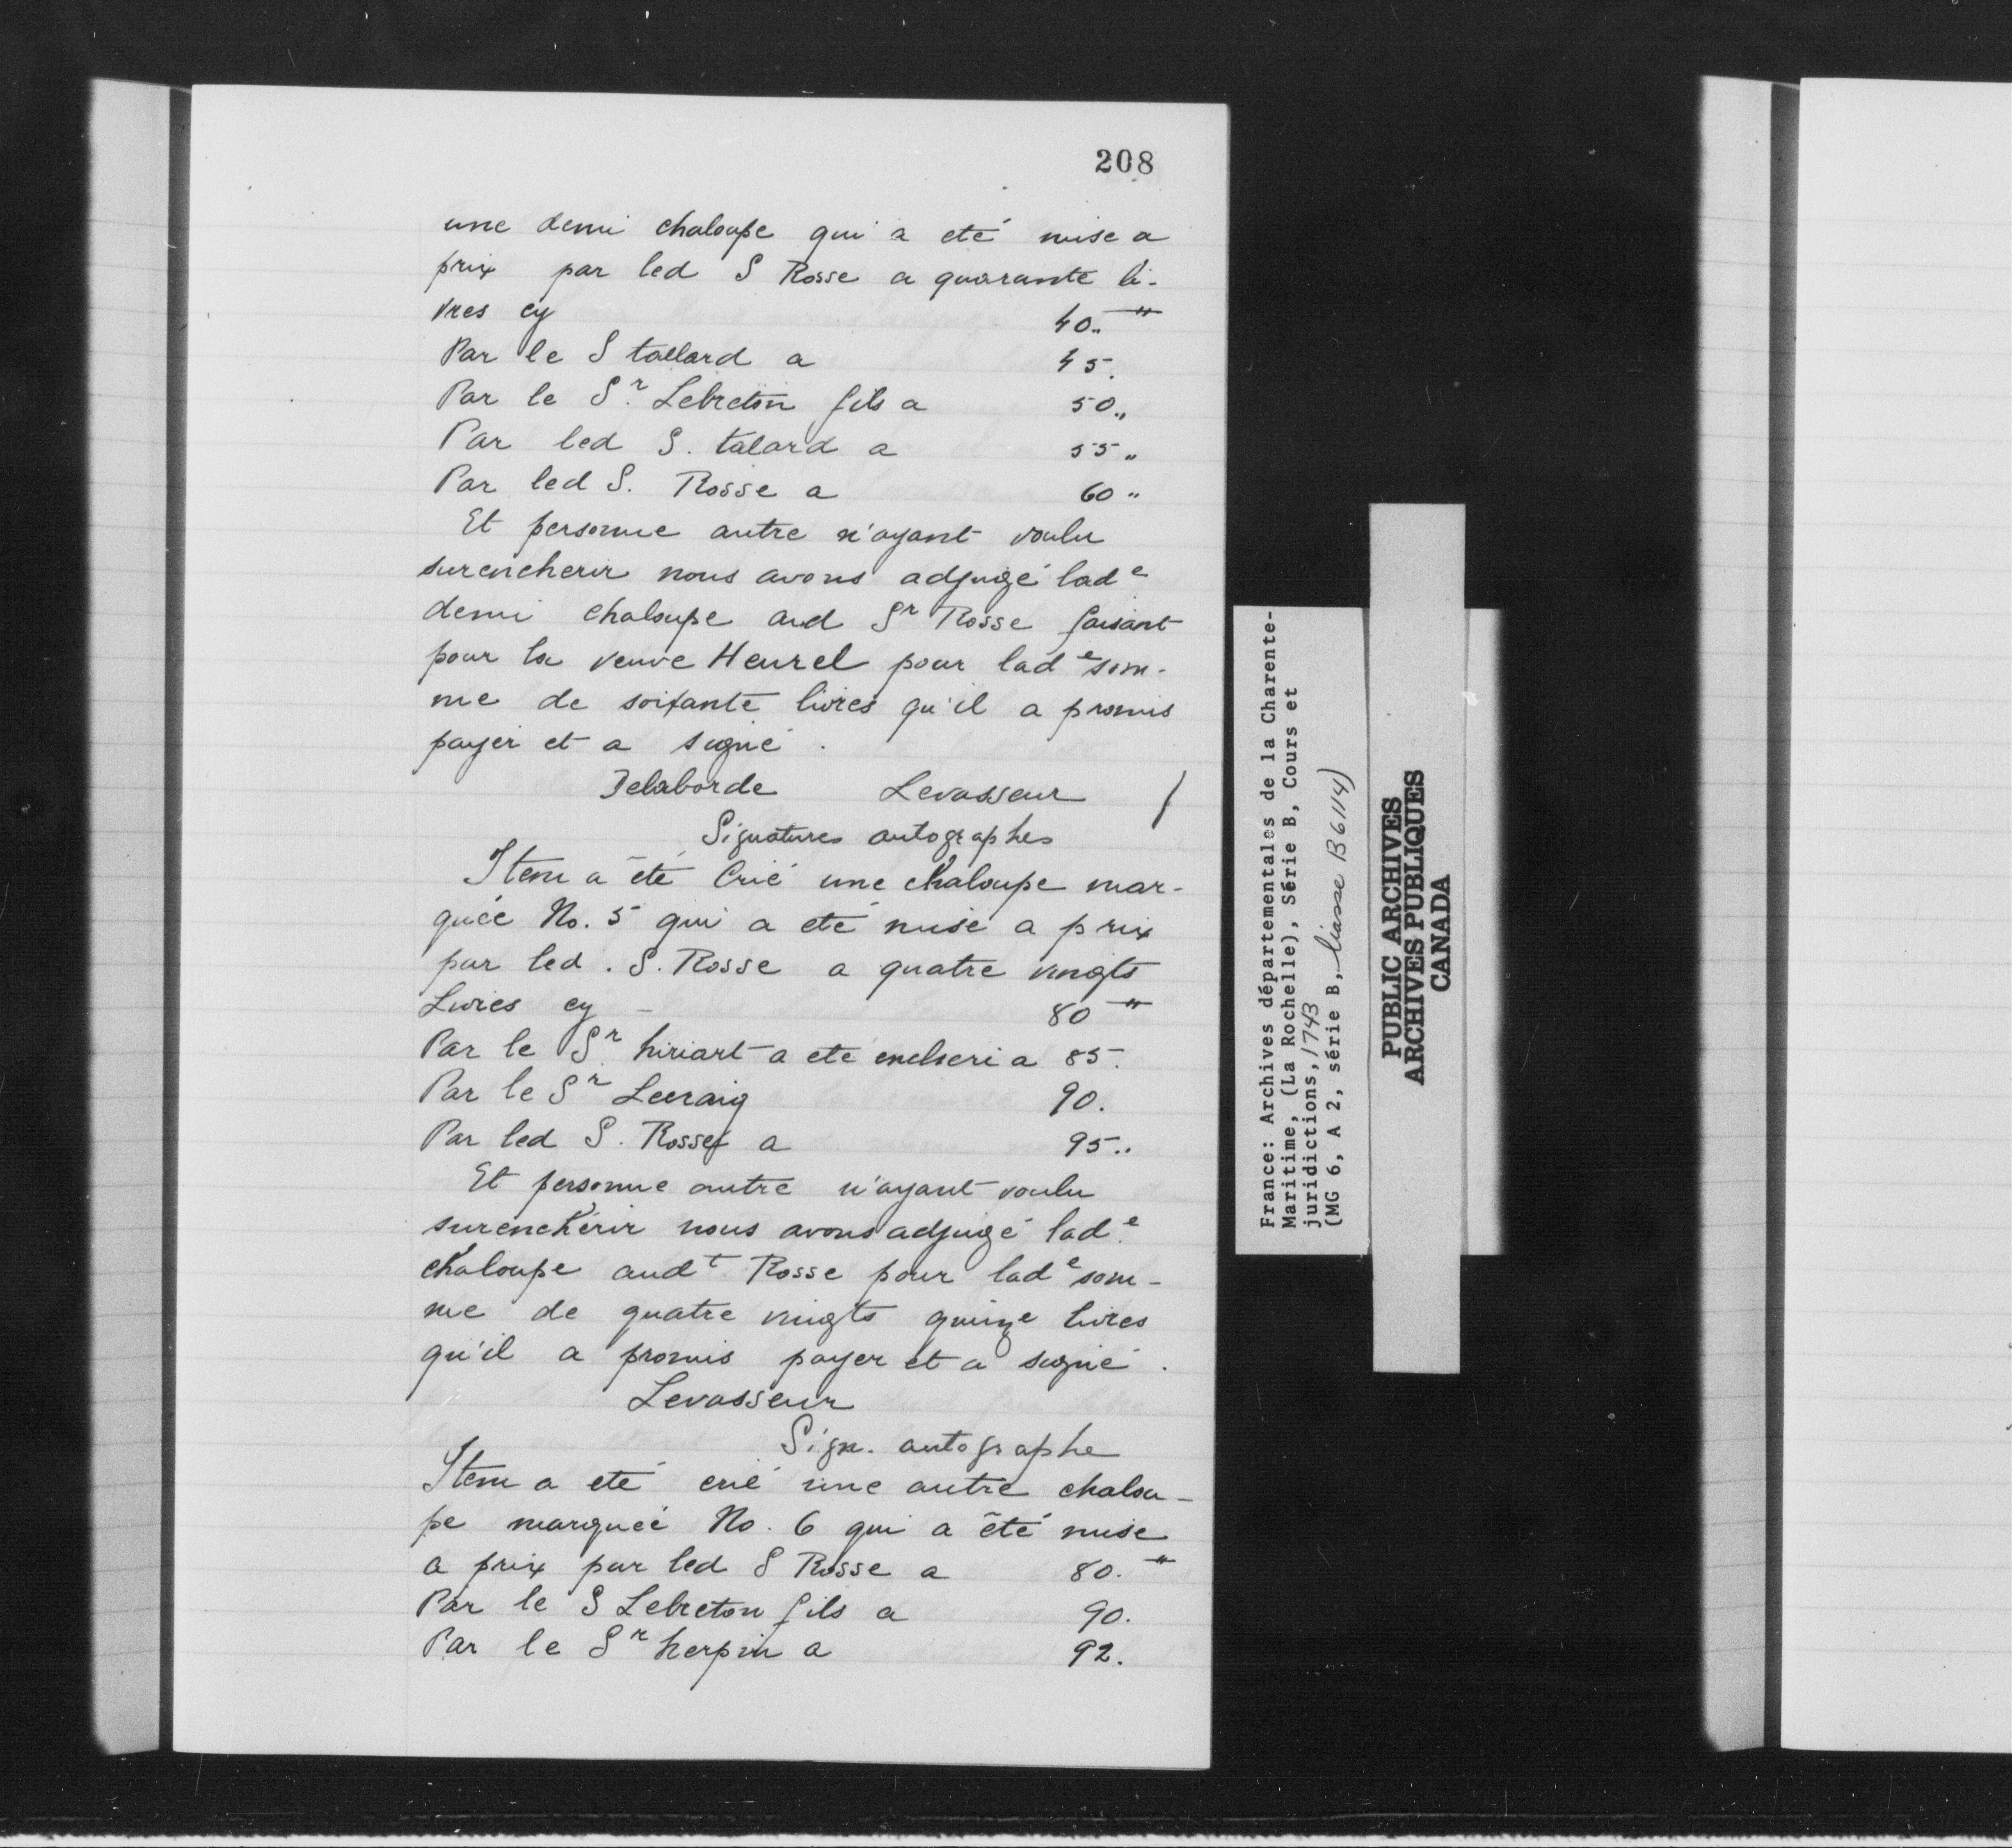 208
une demi chaloupe qui a eté mise a
prix par led S Rosse a quarante li-
vres cy 40.. "
Par le S tallard a 45.
Par le Sr. Lebreton fils a 50,,
Par led S. talard a 55 "
Par led S. Rosse a 60 "
Et personne autre n'ayant voulu
surencherir nous avons adjugé lade
demi chaloupe aud Sr Rosse faisant
pour la veuve Heurel pour lade som-
me de soixante livres qu'il a promis
payer et a signé.
Delaborde Levasseur
Signatures autographes
Item a été Crié une chaloupe mar-
quée No. 5 qui a eté mise a prix
par led. S. Rosse a quatre vingts
Livres cy - 80 "
Par le Sr hiriart a eté encheri a 85.
Par le Sr Lecraig 90.
Par led S. Rosse a 95..
Et personne autre n'ayant voulu
surenchérir nous avons adjugé lade.
chaloupe audt Rosse pour lade som-
me de quatre vingts quinze livres
qu'il a promis payer et a signé.
Levasseur
Sign. autographe
Item a eté crié une autre chalou-
pe marquée No. 6 qui a été mise
a prix par led S Rosse a 80. "
Par le S Lebreton fils a 90.
Par le Sr herpin a 92.
France: Archives départementales de la Charente-
Maritime, (La Rochelle), Série B, Cours et
juridictions, 1743
(MG 6, A 2, série B, liasse B6114)
PUBLIC ARCHIVES
ARCHIVES PUBLIQUES
CANADA